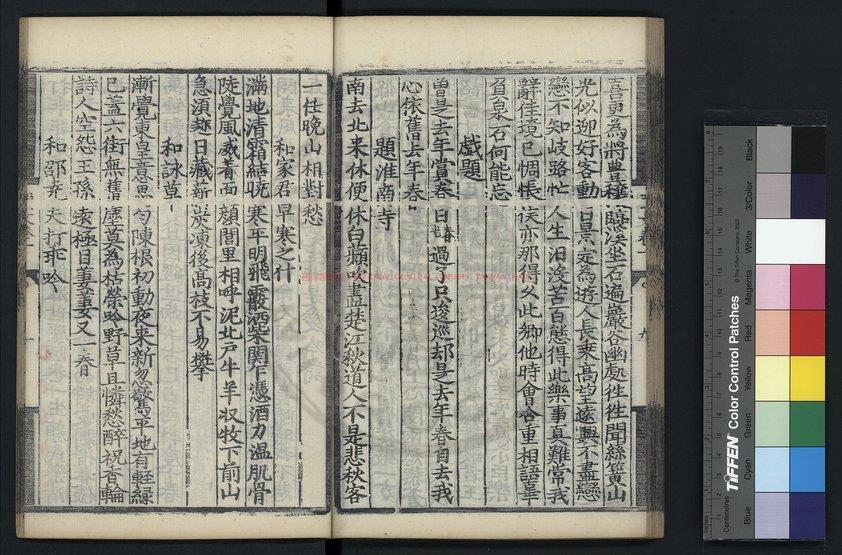 喜更為將豊穰臨溪坐石遍巖谷幽處往往聞絲簧山
光似迎好客動日景定為遊人長乘髙望遠興不盡戀
戀不知岐路忙人生汩没苦百態得此樂事真難常我
辭佳境已惆悵亦那得久此鄉他時會合重相語辜
負泉石何能忘
戯題
曽是去年賞春日春過了只逡巡却是去年春自去我
心依舊去年春
題淮南寺
南去北来休便休白蘋吹盡楚江秋道人不是悲秋客
一任晚山相對愁
和家君早寒之什
滿地清霜結曉寒平明飛霰洒柴関乍憑酒力温肌骨
陡覺風威着面顔閭里相呼泥北户牛羊収牧下前山
急須趂日藏薪炭凍後髙枝不易攀
和詠草
漸覺東皇意思勻陳根初動夜来新忽驚平地有輕緑
已蓋六街無舊塵莫為枯榮吟野草且憐愁醉祝香輪
詩人空怨王孫遠極目萋萋又一春
和邵堯夫打乖吟
TIFFEN Color Control Patches
© The Tiffen Company, 2007
Blue Cyan Green Yellow Red Magenta White 3/Color Black
Centimetres
Inches